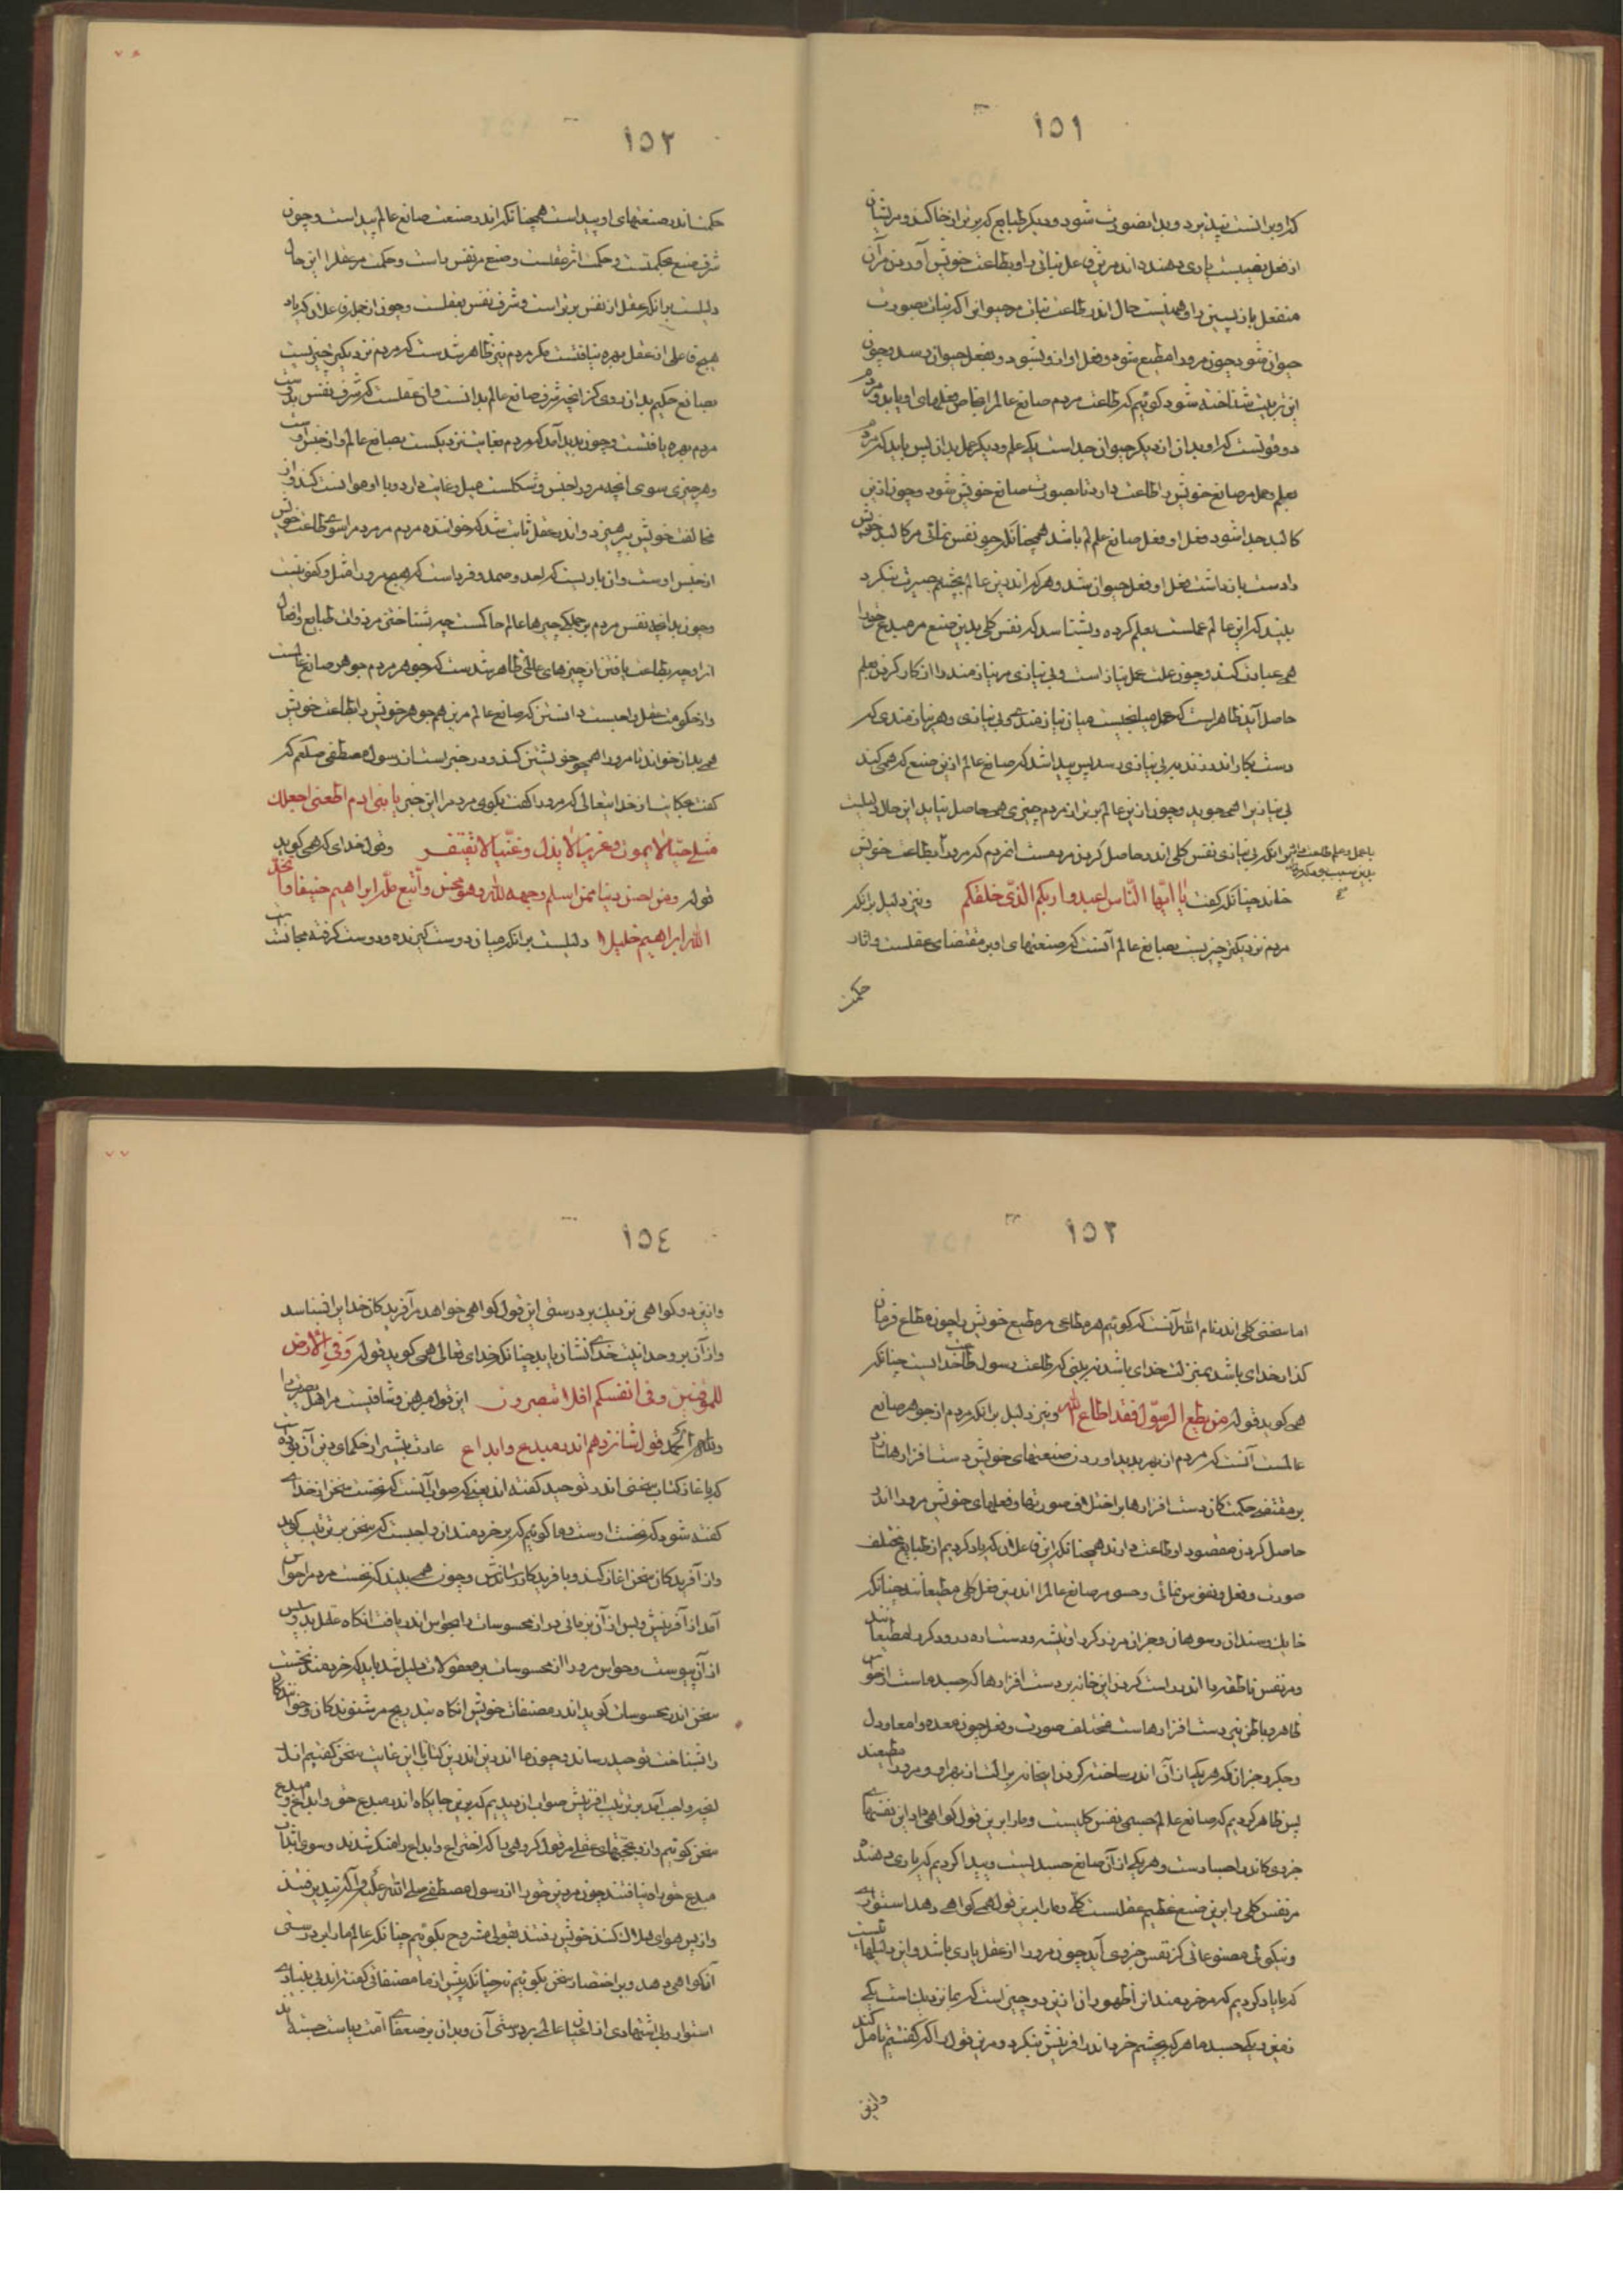 ١٥١
کند و بر انست بپذیرد و بدان صورت شود و دیگر طبایع که برتر از خاکند و مر ایشان
از فعل نصیبست یاری دهنده اند مرین فاعل نباتی را و بطاعت خویش آوردن مر آن
منفعل بازپسین را و همینست حال اندر طاعت نبات مر حیوانرا که نبات بصورت
حیوان شود چون مرو را مطیع شود و فعل او ازو بشود و بفعل حیوان رسد و چون
این ترتیب شناخته شود گوئیم که طاعت مردم صانع عالمرا بخاص فعلهای او باید و مردم
دو قوتست که او بدان از دیگر حیوان جداست یکی علم و دیگر عمل بدان پس باید که مردم
بعلم و عمل مر صانع خویش را طاعت دارد تا بصورت صانع خویش شود و چون ازین
کالبد جدا شود فعل او فعل صانع عالم باشد همچنانکه چو نفس نمائی مر کالبد خویش
را دست باز داشت فعل او فعل حیوان شد و هر که اندرین عالم بچشم بصیرت بنگرد
ببیند که این عالم عملست بعلم کرده و بشناسد که نفس کلی بدین صنع مر مبدع خود را
همی عبادت کند و چون علت عمل نیاز است و بی نیازی مر نیازمند را از کار کردن بعلم
حاصل آید ظاهر است که عمل میانجیست میان نیازمند و بی نیازی و هر نیازمندی که
دست بکار اندر زند به بی نیازی رسد پس پیدا شد که صانع عالم ازین صنع که همی کند
بی نیازیرا همی جوید و چون ازین عالم برتر از مردم چیزی همی حاصل نیاید این حال دلیلست
بر آنکه بی نیازی نفس کلی اندر حاصل کردن مردمست از مردم که مرورا بطاعت خویش
خواند چنانکه گفت یا ایّها النّاس اعبدوا ربکم الذّی خلقکم و نیز دلیل بر آنکه
مردم نزدیکتر چیزیست بصانع عالم آنست که صنعتهای او بر مقتضای عقلست و اثار
حکمت
١٥٢
حکمت اندر صنعتهای او پیداست همچنانکه اندر صنعت صانع عالم پیداست و چون
شرف صنع بحکمتست و حکمت اثر عقلست و صنع مر نفس راست و حکمت مر عقلرا این حال
دلیلست بر آنکه عقل از نفس برتر است و شرف نفس بعقلست و چون از جمله فاعلان که یاد
هیچ فاعلی از عقل بهره نیافتست مگر مردم نیز ظاهر شدست که مردم نزدیکتر چیزیست
بصانع حکیم بدان روی کز آنچه شرف صانع عالم بدانست و آن عقلست که شرف نفس بدوست
مردم بهره یافتست و چون پدید آمد که مردم بغایت نزدیکست بصانع عالم و از جنس اوست
و هر چیزی سوی آنچه مرورا جنس و شکلست میل و رغبت دارد و با او موانست کند و از
مخالف خویش بپرهیزد و اندر عقل ثابت شد که خواننده مردم مر مردم را سوی طاعت خویش
از جنس اوست و آن باریست که احد و صمد و فرد است که هیچ مرورا مثل و کفو نیست
و چون بدانچه نفس مردم بر جملگی چیزها عالم حاکمست چه بشناختن مر ذوات طبایع و افعال
انرا و چه بطاعت یافتن از چیزهای عالمی ظاهر شدست که جوهر مردم جوهر صانع عالمست
و از حکومت عقل واجبست دانستن که صانع عالم مرین هم جوهر خویش را بطاعت خویش
همی بدان خواند تا مرورا همچو خویشتن کند و در خبر است از رسول مصطفی صلعم که
گفت حکایت از خدایتعالی که مرورا گفت بگوی مردم را این خبر یا بنی ادم اطعنی اجعلک
مثلی حیّا لا یموت و عزیزا لا یذل و غنیّا لا یفتقر و قول خدای که همی گوید
قوله و من احسن دینا ممن اسلم وجهه لله و هو محسن و أتبع ملّه ابراهیم حنیفا و اتخذ
اللّه ابراهیم خلیلا دلیلست بر آنکه میان دوست گیرنده و دوست گرفته مجانستست
١٥٣
اما سخنی کلی اندر نام اللّه آنست که گوئیم هر مطاعی مر مطیع خویش را چون مطاع فرمان
گذار خدای باشد بمنزلت خدای باشد نبینی که طاعت رسول طاعت خدایست چنانکه
همی گوید قوله من یطع الرسّول فقد اطاع اللّه و نیز دلیل بر آنکه مردم از جوهر صانع
عالمست آنست که مردم از بهر پدید اوردن صنعتهای خویش دست افزارها سازد
بر مقتضی حکمت کان دست افزارها بر اختلاف صورتها و فعلهای خویش مرورا اندر
حاصل کردن مقصود او طاعت دارند همچنانکه این فاعلان که یاد کردیم از طبایع مختلف
صورت و فعل و نفوس نمائی و حسی مر صانع عالمرا اندرین فعل کلی مطیعانند چنانکه
خایسک و سندان و سوهان و جز ان مر زرگر را و تیشه و دست اره درودگر را مطیعانند
و مر نفس ناطقه را اندر راست کردن این خانه بر دست افزارها که جسد ماست از حواس
ظاهر و باطن نیز دست افزارهاست مختلف صورت و فعل چون معده و امعا و دل
و جگر و جز آن که هر یکی از آن اندر ساخته کردن این خانه بر انسان بهر او مرورا مطیعند
پس ظاهر کردیم که صانع عالم جسمی نفس کلیست و ما را برین قول گواهی داد این نفسهای
جزوی کاندر اجسادست و هر یکی از آن صانع جسدیست و پیدا کردیم که یاری دهنده
مر نفس کلی را برین صنع عظیم عقلست کلی و ما را برین قول همی گواهی دهد استواری
و نیکوئی مصنوعاتی کز نفس جزوی آید چون مرورا از عقل یاری باشد و این دلیلهاست
که ما یاد کردیم که مر خردمندانرا ظهور آن ازین دو چیز است که بما نزدیکست یکی
زمین و یکی جسد ما هر که بچشم خرد اندر افرینش بنگرد و مرین قول را که گفتیم تامل کند
وازین
١٥٤
وازین دو گواهی نزدیک بر درستی این قول گواهی خواهد مر آفریدگار خدایرا بشناسد
و از آن بر وحدانیت خدای نشان یابد چنانکه خدای تعالی همی گوید قوله و فی الارض
للموقنین و فی انفسکم افلا تبصرون این قول مبرهن و شافیست مر اهل بصیرت را
و للّه الحمد قول شانزدهم اندر مبدع و ابداع عادت بیشتر از حکمای دین آن بودست
که باغاز کتاب سخنی اندر توحید گفته اند یعنی که صواب آنست که نخست سخن از خدای
گفته شود که نخست اوست و ما گوئیم که بر خردمندان واجبست که سخن بر ترتیب گوید
و از آفریدگان سخن اغاز کند و بافریدگار رساندش و چون همی بیند که نخست مردم را حواس
آمد از آفرینش و پس از آن بزمانی دراز محسوسات را بحواس اندر یافت انگاه عقل بدو پس
از آن پیوست و حواس مرورا از محسوسات بر معقولات دلیل شد باید که خردمند نخست
سخن اندر محسوسات گوید اندر مصنفات خویش انگاه بتدریج مر شنوندگان و خوانندگان
را بشناخت توحید رساند و چون ما اندرین اندرین کتاب تا این غایت سخن گفتیم اندر
انچه واجب آمد بر ترتیب افرینش صواب ان دیدیم که برین جایگاه اندر مبدع حق و ابداع و مبدع
سخن گوئیم و ان به حجتهای عقلی مر قول گروهی را که اختراع و ابداع را منکر شدند و سوی اثبات
مبدع حق راه نیافتند چون مر دین حق را از رسول مصطفی صلی اللّه علیه و آله نپذیرفتند
و از پس هوای هلاک کننده خویش رفتند بقولی مشروح بگوئیم چنانکه عالم ما را بر درستی
آن گواهی دهد و بر اختصار سخن بگوئیم نه چنانکه پیش از ما مصنفانی گفته اند بی بنیادی
استوار و بی استشهادی از اعیان عالم بر درستی آن و بدان بر ضعفای امت ریاست جسته اند